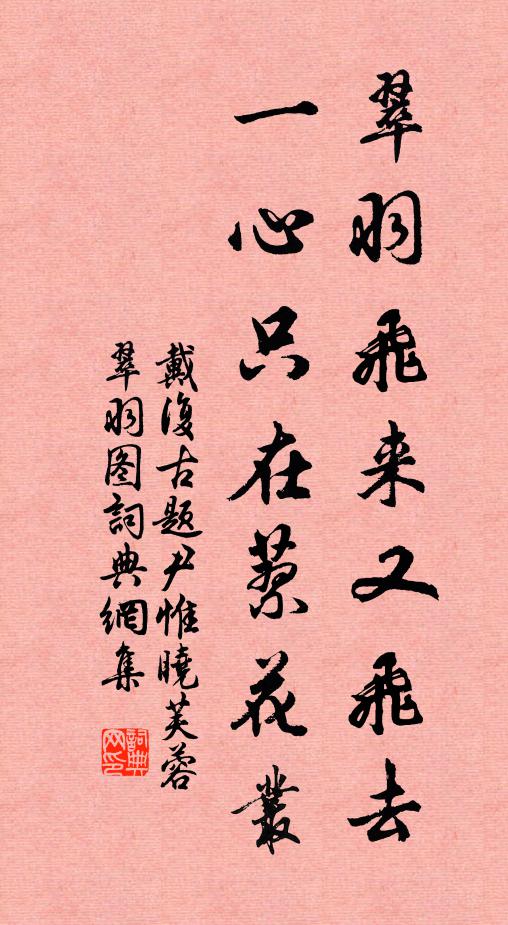 翠羽飛来又飛去
一心只在蘂花叢
戴復古題尹惟曉芙蓉
翠羽图詞典網集
詞典网印